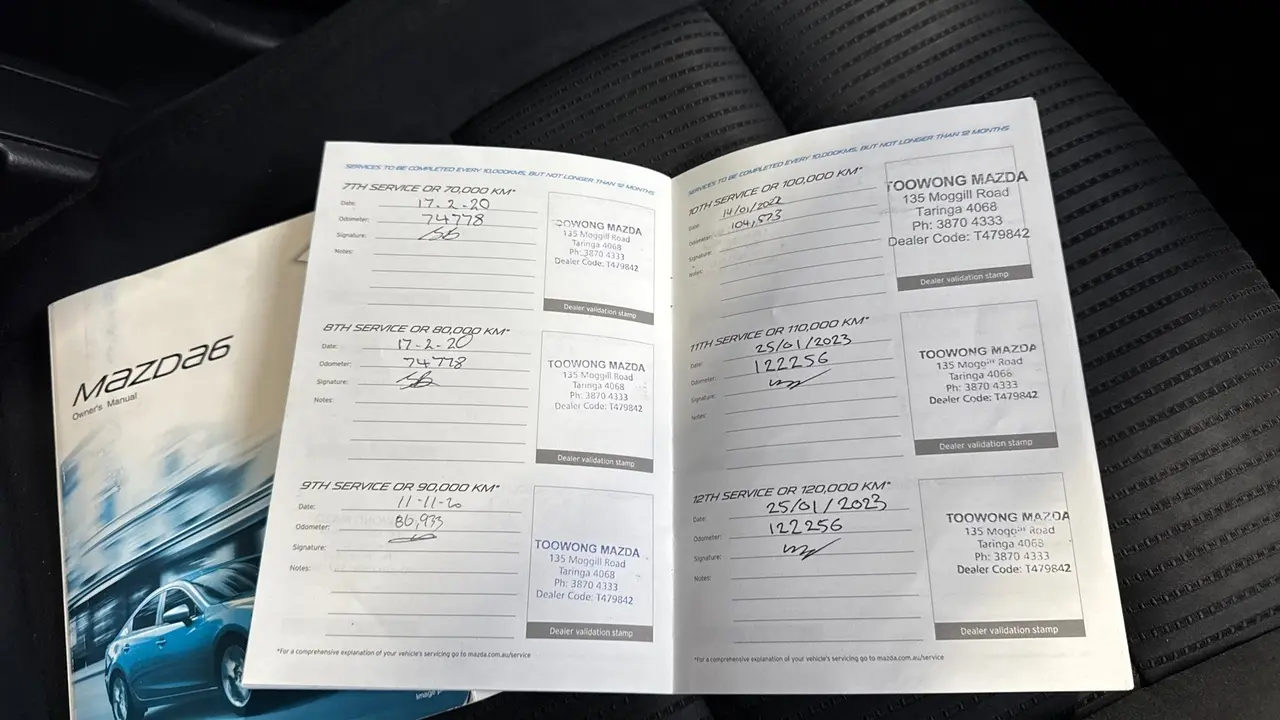 MAZDA6
Owner's Manual
SERVICES TO BE COMPLETED EVERY 10,000KMS, BUT NOT LONGER THAN 12 MONTHS
7TH SERVICE OR 70,000 KM*
Date: 17-2-20
Odometer: 74778
Signature:
Notes:
TOOWONG MAZDA
135 Moggill Road
Taringa 4068
Ph: 3870 4333
Dealer Code: T479842
Dealer validation stamp
8TH SERVICE OR 80,000 KM*
Date: 17-2-20
Odometer: 74778
Signature:
Notes:
TOOWONG MAZDA
135 Moggill Road
Taringa 4068
Ph: 3870 4333
Dealer Code: T479842
Dealer validation stamp
9TH SERVICE OR 90,000 KM*
Date: 11-11-20
Odometer: 86,933
Signature:
Notes:
TOOWONG MAZDA
135 Moggill Road
Taringa 4068
Ph: 3870 4333
Dealer Code: T479842
Dealer validation stamp
*For a comprehensive explanation of your vehicle's servicing go to mazda.com.au/service
SERVICES TO BE COMPLETED EVERY 10,000KMS, BUT NOT LONGER THAN 12 MONTHS
10TH SERVICE OR 100,000 KM*
Date: 14/01/2022
Odometer: 104,573
Signature:
Notes:
TOOWONG MAZDA
135 Moggill Road
Taringa 4068
Ph: 3870 4333
Dealer Code: T479842
Dealer validation stamp
11TH SERVICE OR 110,000 KM*
Date: 25/01/2023
Odometer: 122256
Signature:
Notes:
TOOWONG MAZDA
135 Moggill Road
Taringa 4068
Ph: 3870 4333
Dealer Code: T479842
Dealer validation stamp
12TH SERVICE OR 120,000 KM*
Date: 25/01/2023
Odometer: 122256
Signature:
Notes:
TOOWONG MAZDA
135 Moggill Road
Taringa 4068
Ph: 3870 4333
Dealer Code: T479842
Dealer validation stamp
*For a comprehensive explanation of your vehicle's servicing go to mazda.com.au/service